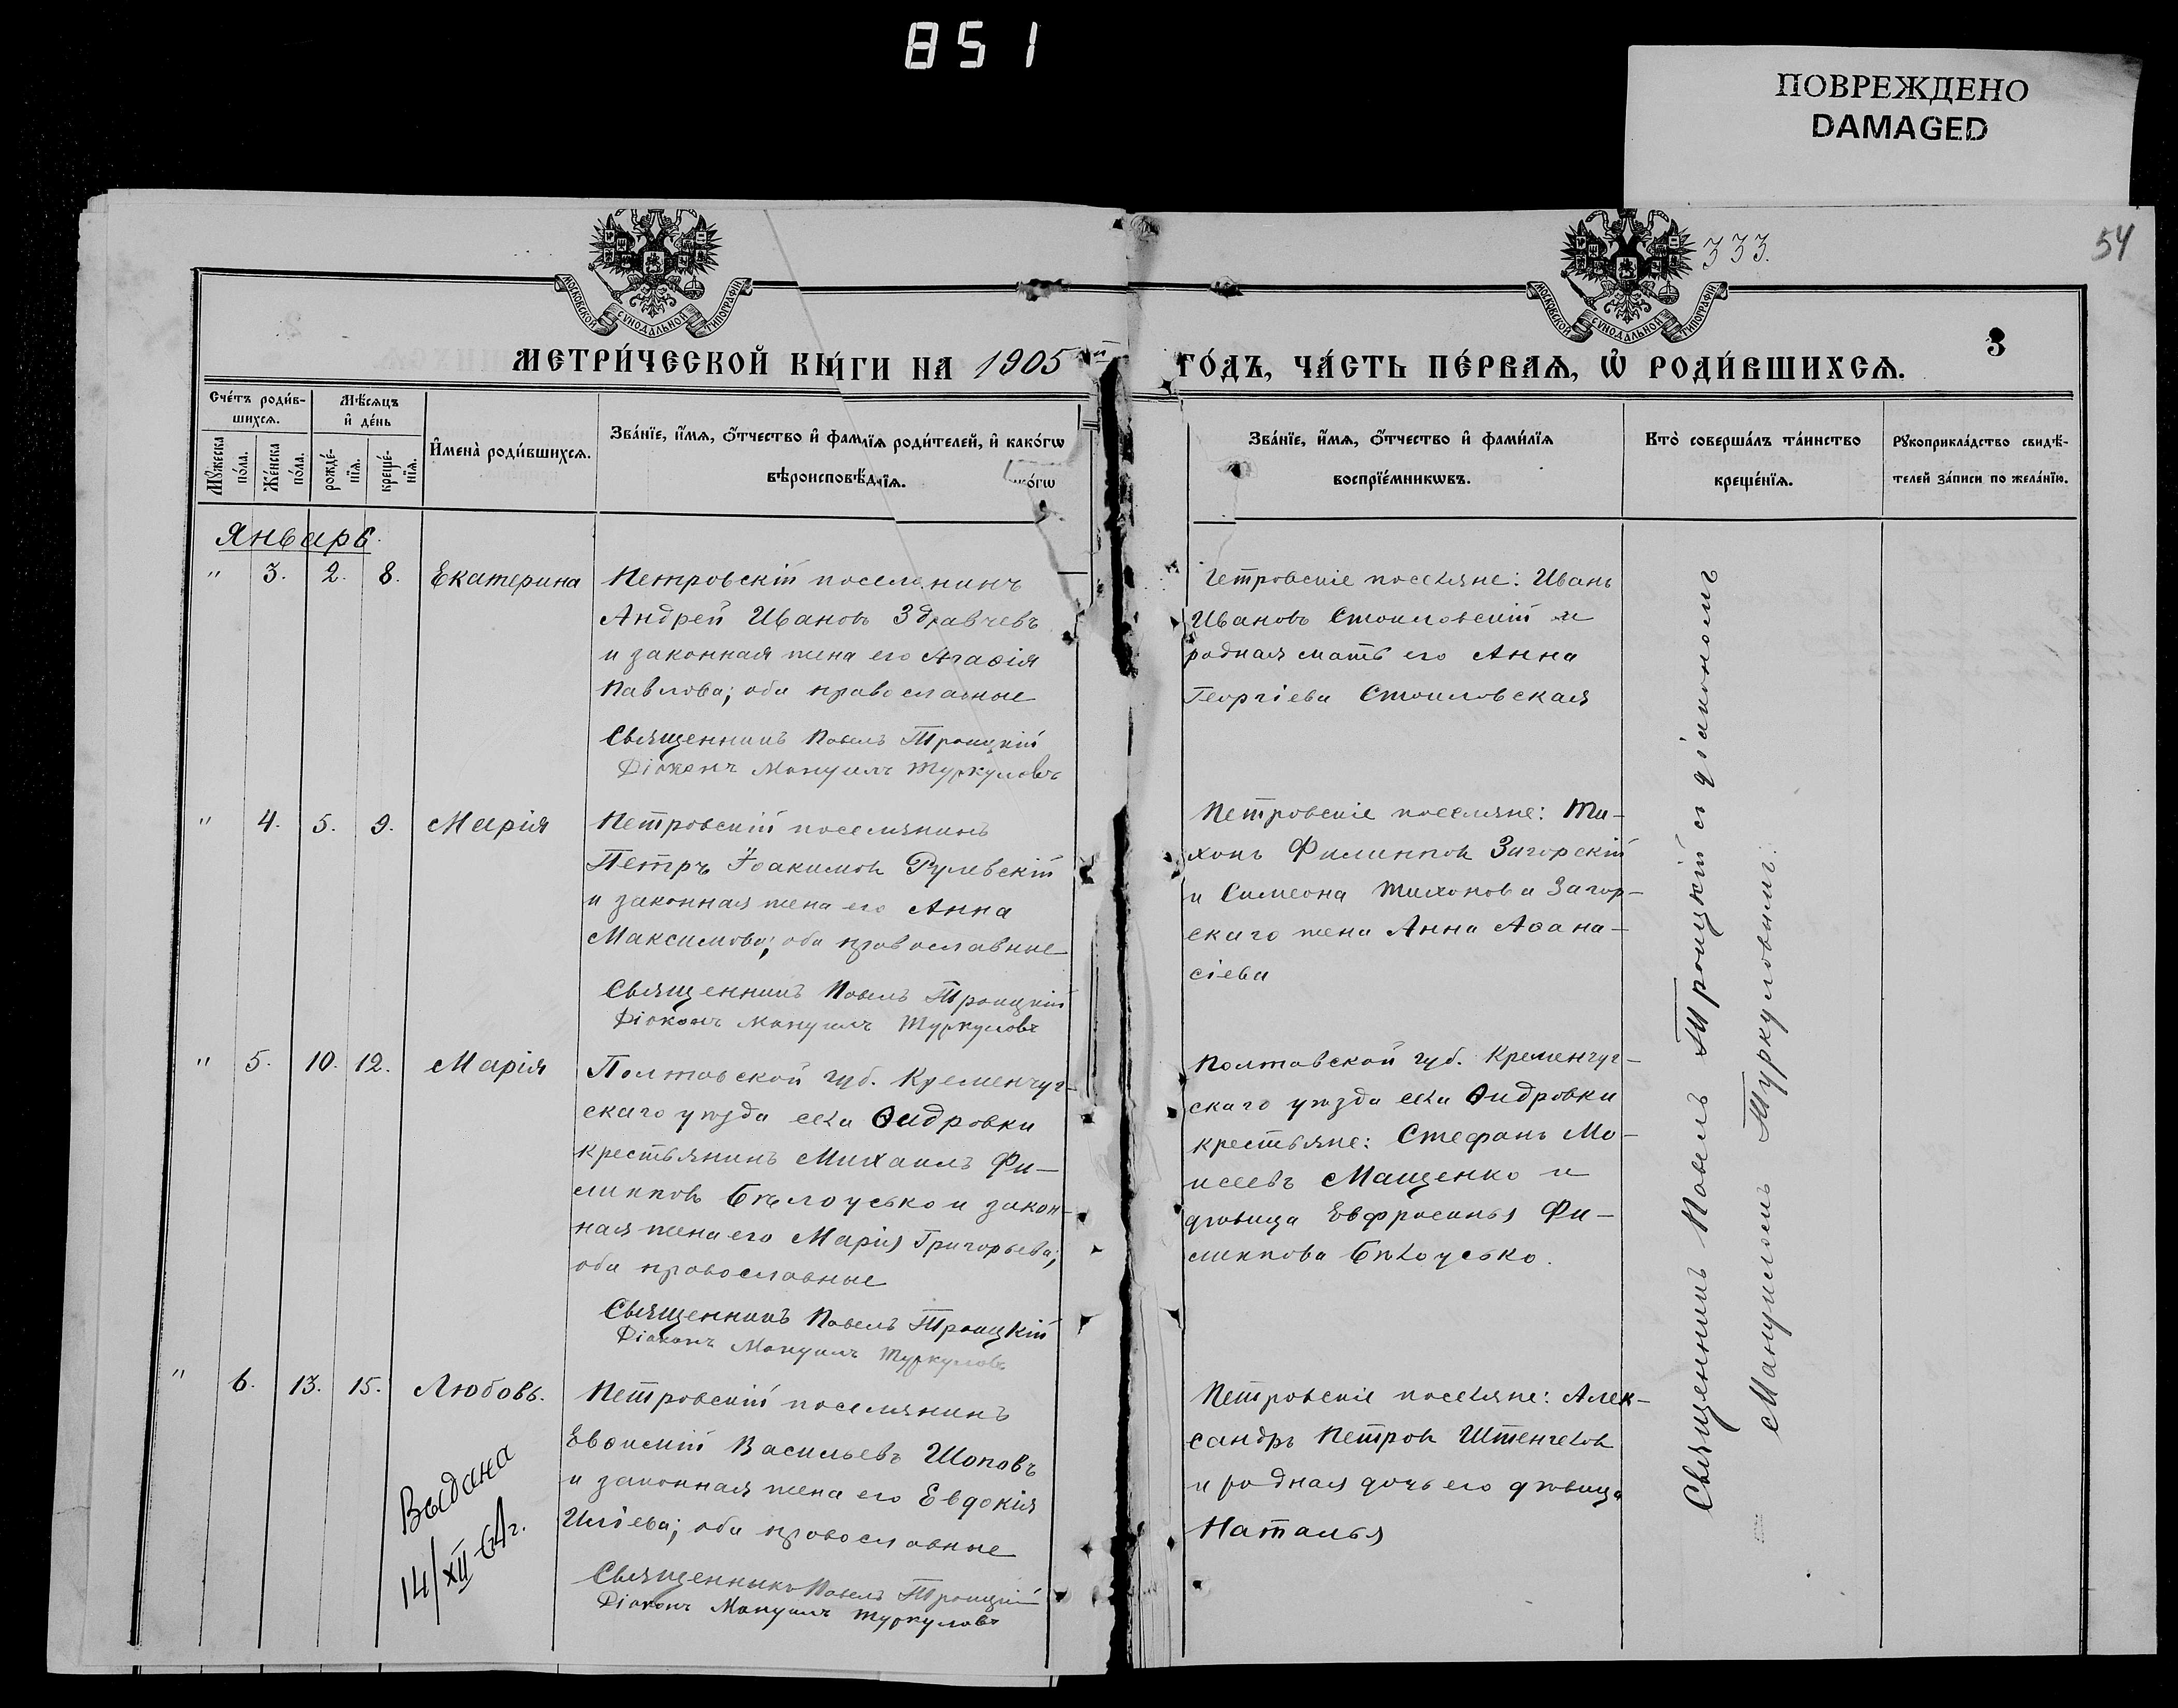 851
ПОВРЕЖДЕНО
DAMAGED
333.
54
МОСКОВСКОЙ СѴНОДАЛЬНОЙ ТИПОГРАФІИ
МОСКОВСКОЙ СѴНОДАЛЬНОЙ ТИПОГРАФІИ
3
МЕТРИ́ЧЕСКОЙ КНИ́ГИ НА 1905 й ГО́ДЪ, ЧА́СТЬ ПЕ́РВАѦ, Ѿ РОДИ́ВШИХСѦ.
Сче́тъ роди́в-
шихсѧ.
Мꙋ́жеска по́ла.
Же́нска по́ла.
Мѣ́сѧцъ
и҆ де́нь
рожде́-нїѧ.
креще́-нїѧ.
И҆мена̀ роди́вшихсѧ.
Зва́нїе, и҆́мѧ, ѻ҆́тчество и҆ фамилїѧ роди́телей, и҆ како́гѡ
вѣроисповѣ́данїѧ.
Зва́нїе, и҆́мѧ, ѻ҆́тчество и҆ фами́лїѧ
воспрїе́мникѡвъ.
Кто̀ соверша́лъ та́инство
креще́нїѧ.
Рꙋкоприкла́дство свидѣ́-
телей за́писи по жела́нїю.
Январь.
" 3. 2. 8. Екатерина
Петровскій поселянинъ
Андрей Ивановъ Здравчевъ
и законная жена его Агаѳія
Павлова; оба православные
Священникъ Павелъ Троицкій
Діаконъ Мануилъ Туркуловъ
Петровскіе поселяне: Иванъ
Ивановъ Стоиловскій и
родная мать его Анна
Георгіева Стоиловская
" 4. 5. 9. Марія
Петровскій поселянинъ
Петръ Іоакимов Рулевскій
и законная жена его Анна
Максимова; оба православные
Священникъ Павелъ Троицкій
Діаконъ Мануилъ Туркуловъ
Петровскіе поселяне: Ти-
хонъ Филиппов Загорскій
и Симеона Тихонова Загор-
скаго жена Анна Аѳана-
сіева
" 5. 10. 12. Марія
Полтавской губ. Кременчуг-
скаго уѣзда села Ѳидровки
крестьянинъ Михаилъ Фи-
липповъ Бѣлоусько и закон-
ная жена его Марія Григорьева;
оба православные
Священникъ Павелъ Троицкій
Діаконъ Мануилъ Туркуловъ
Полтавской губ. Кременчуг-
скаго уѣзда села Ѳидровки
крестьяне: Стефанъ Мо-
исеевъ Мащенко и
дѣвица Евфросинья Фи-
липпова Бѣлоусько.
" 6. 13. 15. Любовь.
Петровскій поселянинъ
Евѳимій Васильевъ Шоповъ
и законная жена его Евдокія
Иліева; оба православные
Священникъ Павелъ Троицкій
Діаконъ Мануилъ Туркуловъ
Петровскіе поселяне: Алек-
сандръ Петров Штенчелов
и родная дочь его дѣвица
Наталья
Выдана
14/XII-64г.
Священникъ Павелъ Троицкій съ діакономъ
Мануиломъ Туркуловымъ.